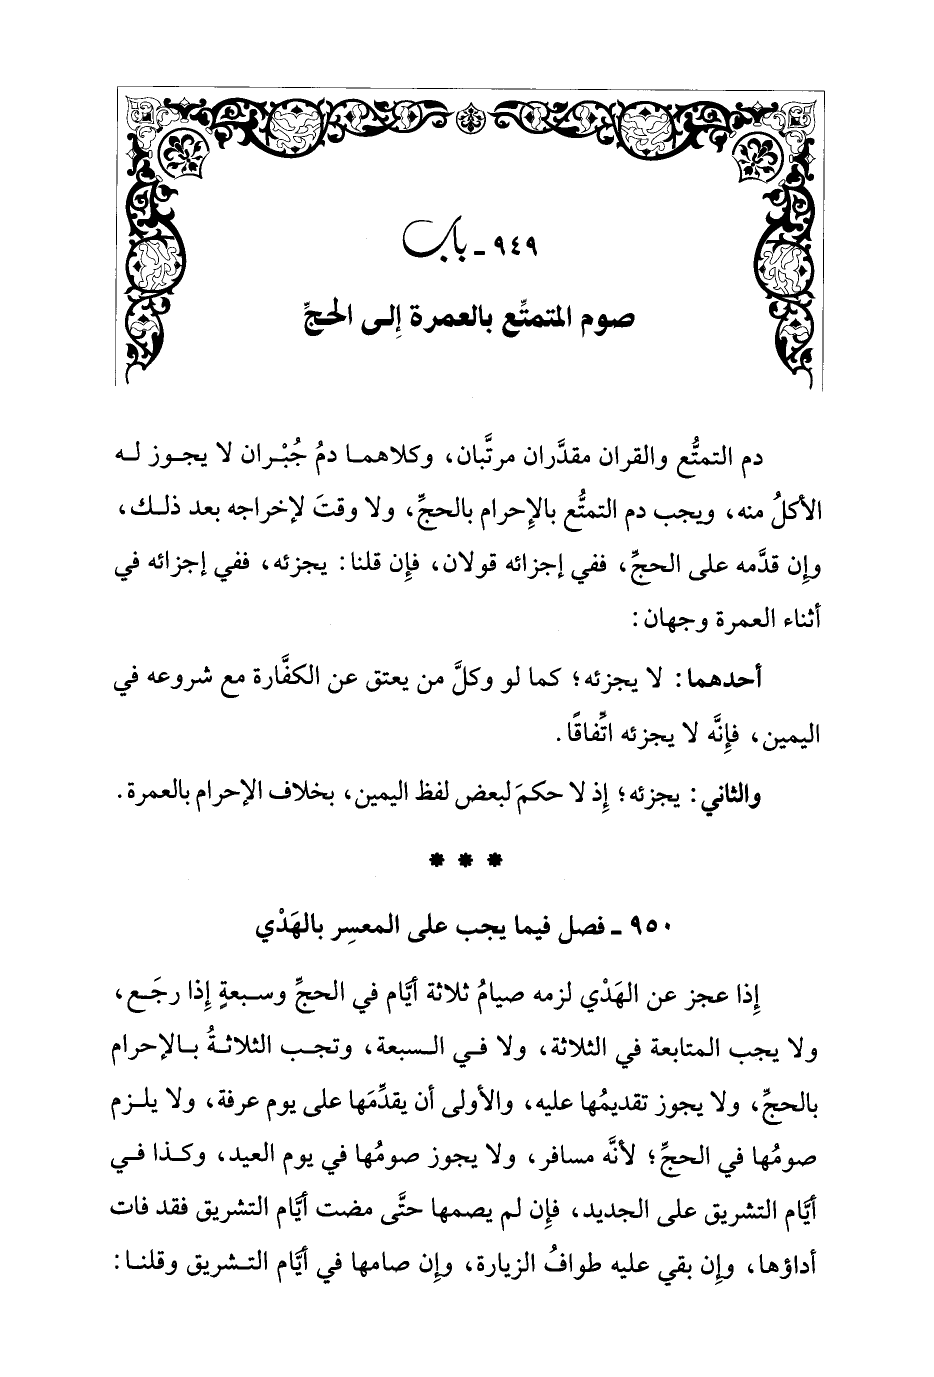 ٩٤٩ - باب
صوم المتمتِّع بالعمرة إلى الحجِّ
دم التمتُّع والقران مقدَّران مرتَّبان، وكلاهما دمُ جُبْران لا يجوز له
الأكلُ منه، ويجب دم التمتُّع بالإحرام بالحجِّ، ولا وقتَ لإخراجه بعد ذلك،
وإن قدَّمه على الحجِّ، ففي إجزائه قولان، فإن قلنا: يجزئه، ففي إجزائه في
أثناء العمرة وجهان:
أحدهما: لا يجزئه؛ كما لو وكلَّ من يعتق عن الكفَّارة مع شروعه في
اليمين، فإنَّه لا يجزئه اتِّفاقًا.
والثاني: يجزئه؛ إذ لا حكمَ لبعض لفظ اليمين، بخلاف الإحرام بالعمرة.
* * *
٩٥٠ - فصل فيما يجب على المعسِر بالهَدْي
إذا عجز عن الهَدْي لزمه صيامُ ثلاثة أيَّام في الحجِّ وسبعةٍ إذا رجَع،
ولا يجب المتابعة في الثلاثة، ولا في السبعة، وتجب الثلاثةُ بالإحرام
بالحجِّ، ولا يجوز تقديمُها عليه، والأولى أن يقدِّمَها على يوم عرفة، ولا يلزم
صومُها في الحجِّ؛ لأنَّه مسافر، ولا يجوز صومُها في يوم العيد، وكذا في
أيَّام التشريق على الجديد، فإن لم يصمها حتَّى مضت أيَّام التشريق فقد فات
أداؤها، وإن بقي عليه طوافُ الزيارة، وإن صامها في أيَّام التشريق وقلنا: